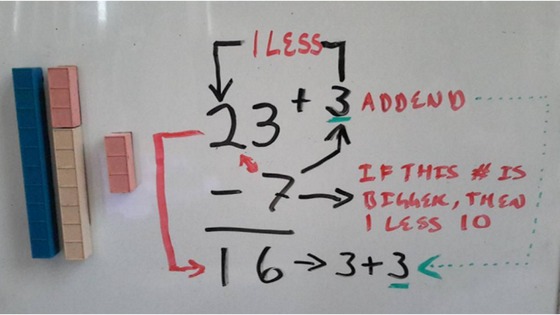 1 LESS
23 + 3 ADDEND
- 7 → IF THIS # IS
BIGGER, THEN
1 LESS 10
16 → 3+3